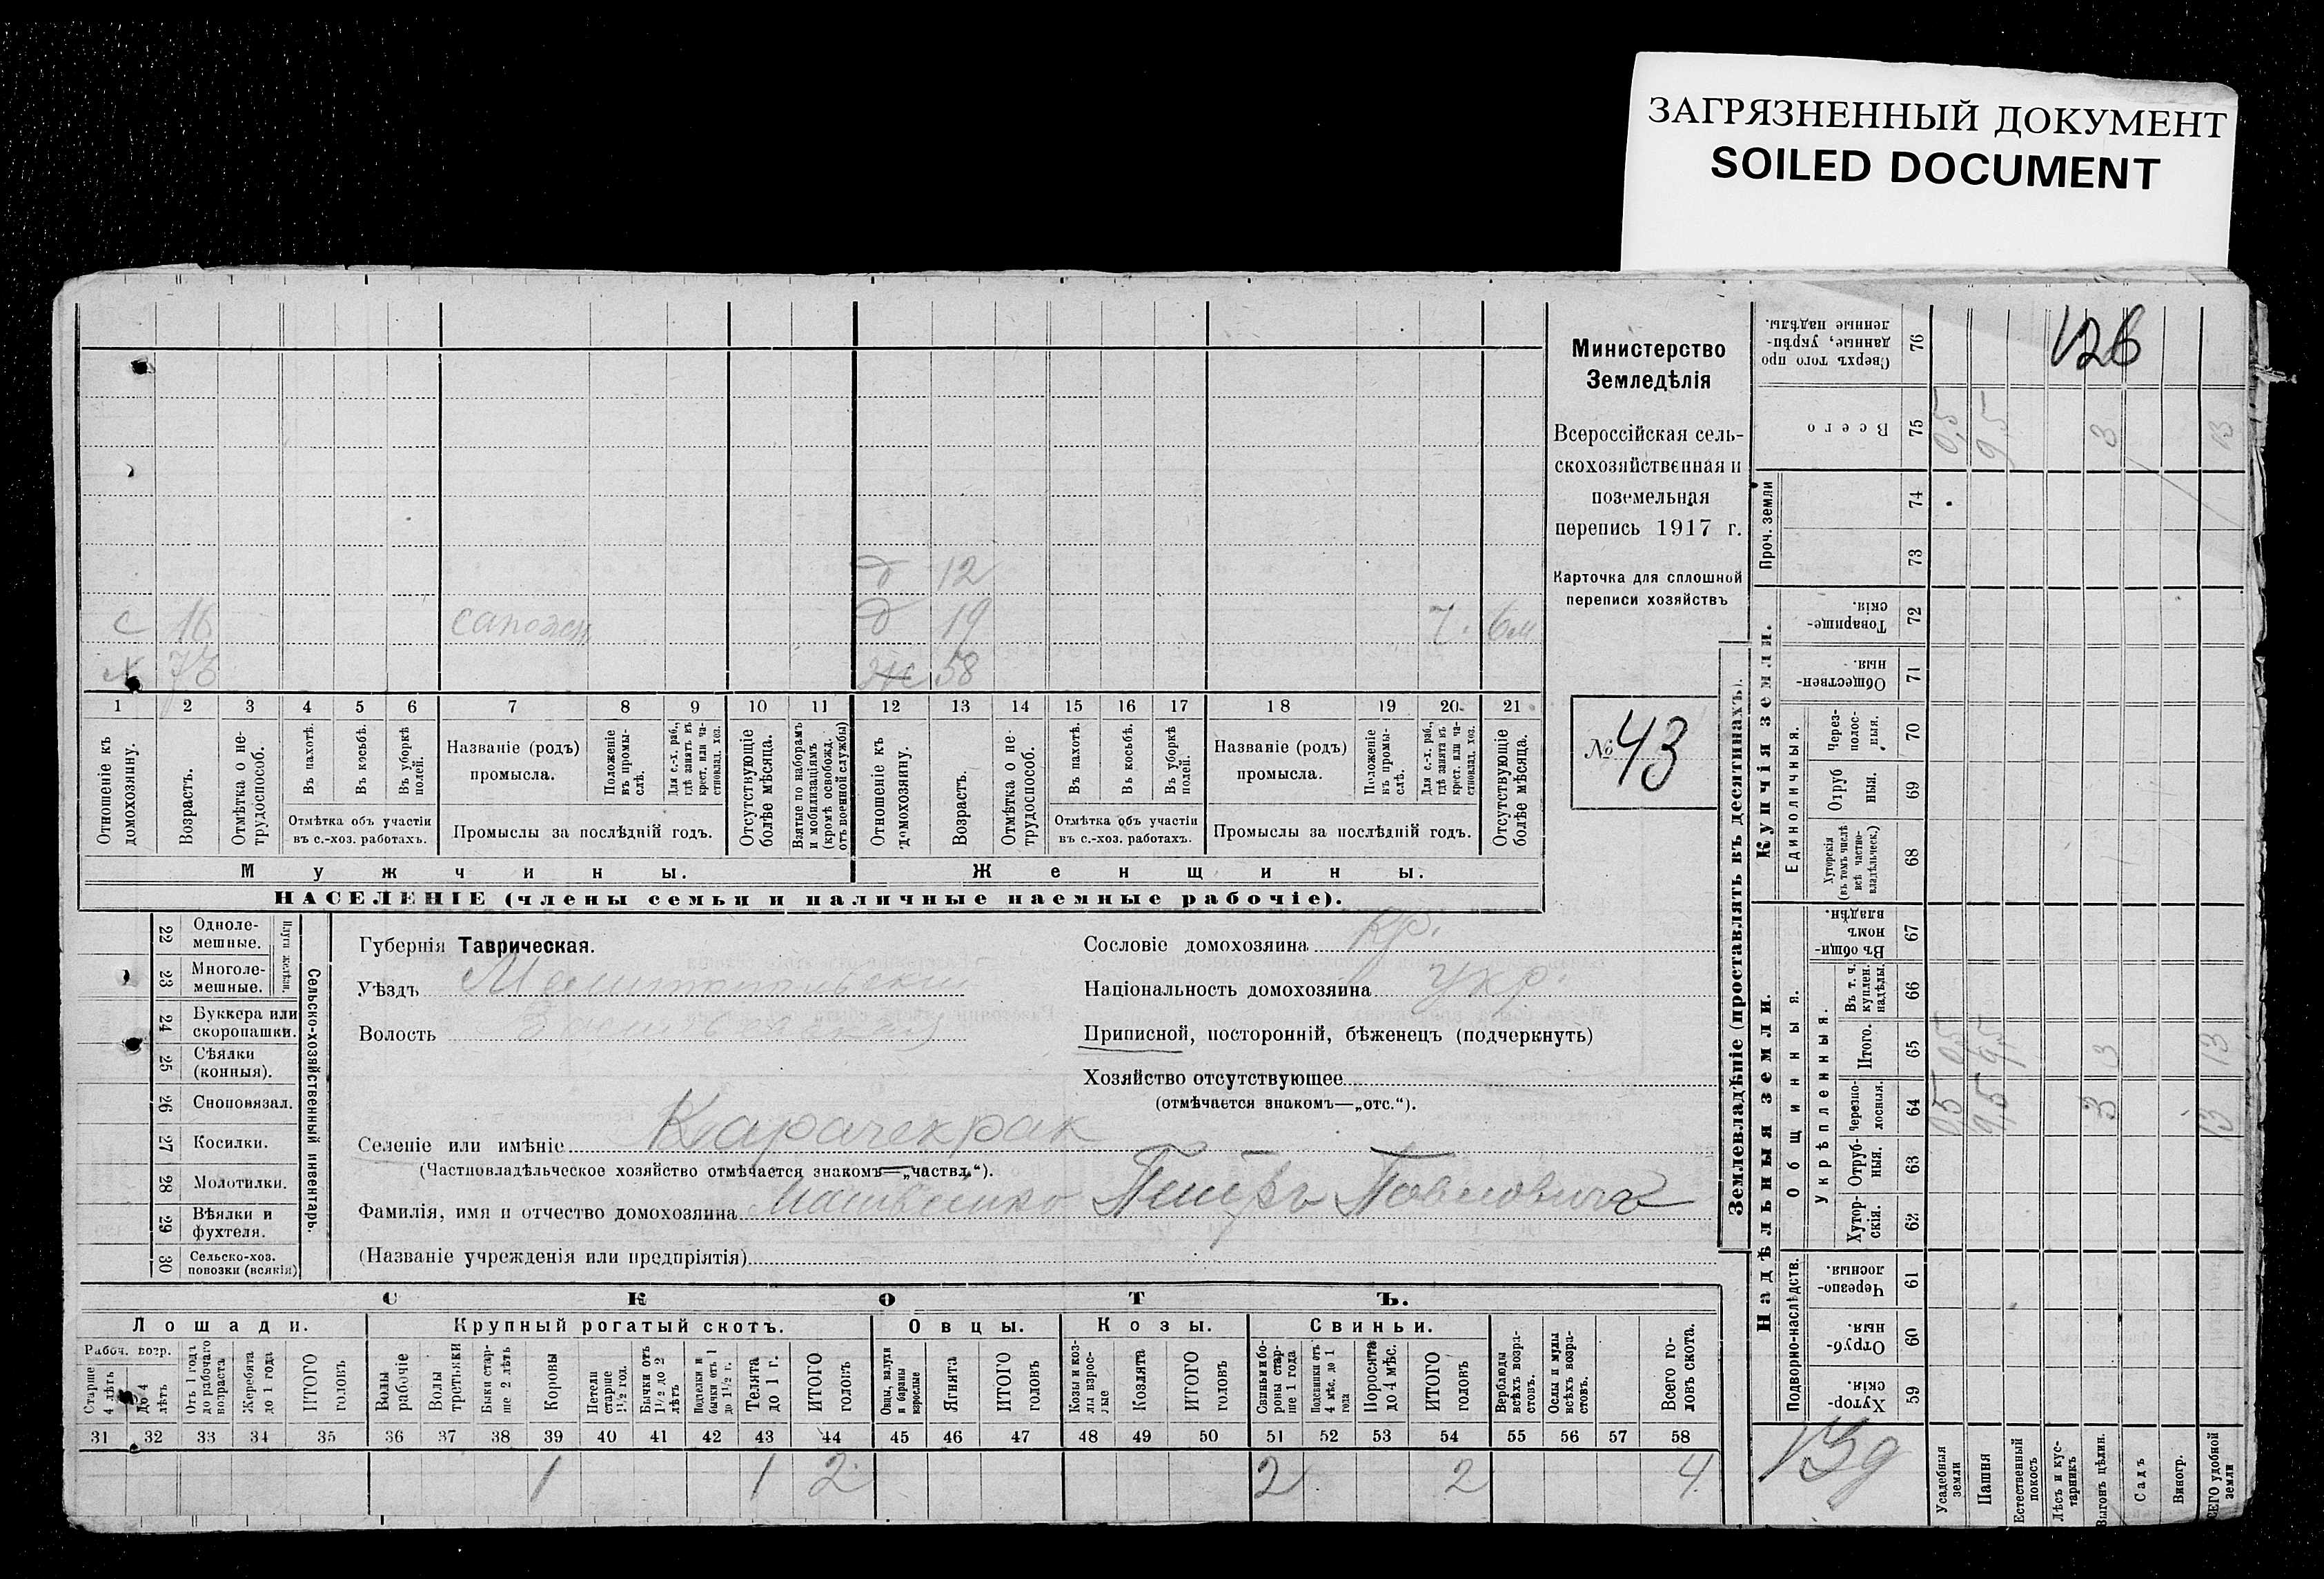 ЗАГРЯЗНЕННЫЙ ДОКУМЕНТ
SOILED DOCUMENT
126
Министерство
Земледѣлія
Всероссійская сель-
скохозяйственная и
поземельная
перепись 1917 г.
Карточка для сплошной
переписи хозяйствъ
№ 43
д 12
с 16 сапожн д 19 7. 6м
х 73 ж 58
1 2 3 4 5 6 7 8 9 10 11 12 13 14 15 16 17 18 19 20 21
Отношеніе къ домохозяину.
Возрастъ.
Отмѣтка о не-трудоспособ.
Въ пахотѣ.
Въ косьбѣ.
Въ уборкѣ полей.
Отмѣтка объ участіи
въ с.-хоз. работахъ.
Названіе (родъ)
промысла.
Положеніе въ промы-слѣ.
Для с.-х. раб., гдѣ занятъ въ крест. или ча-стновлад. хоз.
Промыслы за послѣдній годъ.
Отсутствующіе болѣе мѣсяца.
Взятые по наборамъ и мобилизаціямъ (кромѣ освобожд. отъ военной службы)
Отношеніе къ домохозяину.
Возрастъ.
Отмѣтка о не-трудоспособ.
Въ пахотѣ.
Въ косьбѣ.
Въ уборкѣ полей.
Отмѣтка объ участіи
въ с.-хоз. работахъ.
Названіе (родъ)
промысла.
Положеніе въ промы-слѣ.
Для с.-х. раб., гдѣ занята въ крест. или ча-стновлад. хоз.
Промыслы за послѣдній годъ.
Отсутствующіе болѣе мѣсяца.
Мужчины. Женщины.
НАСЕЛЕНІЕ (члены семьи и наличные наемные рабочіе).
Сельско-хозяйственный инвентарь.
Плуги желѣзн.
22 Одноле-мешные.
23 Многоле-мешные.
24 Буккера или скоропашки.
25 Сѣялки (конныя).
26 Сноповязал.
27 Косилки.
28 Молотилки.
29 Вѣялки и фухтеля.
30 Сельско-хоз. повозки (всякія)
Губернія Таврическая.
Уѣздъ Мелитопольскій
Волость
Селеніе или имѣніе Карачекрак
(Частновладѣльческое хозяйство отмѣчается знакомъ—„частвл“).
Фамилія, имя и отчество домохозяина Матвеенко Петръ Павловичъ
(Названіе учрежденія или предпріятія)
Сословіе домохозяина кр.
Національность домохозяина укр.
Приписной, посторонній, бѣженецъ (подчеркнуть)
Хозяйство отсутствующее
(отмѣчается знакомъ—„отс.“).
СКОТЪ.
Лошади. Крупный рогатый скотъ. Овцы. Козы. Свиньи.
Рабоч. возр.
Старше 4 лѣтъ
До 4 лѣтъ
Отъ 1 года до рабочаго возраста
Жеребята до 1 года
ИТОГО головъ
Волы рабочіе
Волы третьяки
Быки стар-ше 2 лѣтъ
Коровы
Нетели старше 1½ год.
Бычки отъ 1½ до 2 лѣтъ
Подтелки и бычки отъ 1 до 1½ г.
Телята до 1 г.
ИТОГО головъ
Овцы, валухи и бараны взрослые
Ягнята
ИТОГО головъ
Козы и коз-лы взрос-лые
Козлята
ИТОГО головъ
Свиньи и бо-ровы стар-ше 1 года
Подсвинки отъ 4 мѣс. до 1 года
Поросята до 4 мѣс.
ИТОГО головъ
Верблюды всѣхъ возра-стовъ.
Ослы и мулы всѣхъ возра-стовъ.
Всего го-ловъ скота.
31 32 33 34 35 36 37 38 39 40 41 42 43 44 45 46 47 48 49 50 51 52 53 54 55 56 57 58
1 1 2 2 2 4
Землевладѣніе (проставлять въ десятинахъ).
76 Сверхъ того про данные, укрѣп-ленные надѣлы.
75 Всего 0,5 9,5 3 13
Проч. земли
74
73
Купчія земли.
72 Товарище-скія.
71 Обществен-ныя.
Единоличныя.
70 Через-полос-ныя.
69 Отруб ныя.
68 Хуторскія (въ томъ числѣ всѣ частно-владѣльческ.)
Надѣльныя земли.
Общинныя.
67 Въ общи-номъ владѣн.
Укрѣпленныя.
66 Въ т. ч. куплен. надѣлы.
65 Итого. 0,5 9,5 3 13
64 Черезпо-лосныя. 0,5 9,5 3 13
63 Отруб-ныя.
62 Хутор-скія.
Подворно-наслѣдств.
61 Черезпо-лосныя.
60 Отруб-ныя.
59 Хутор-скія.
13д
Усадебныя земли
Пашня
Естественный покосъ
Лѣсъ и кус-тарникъ
Выгонъ цѣлин.
Садъ
Виногр.
ВСЕГО удобной земли